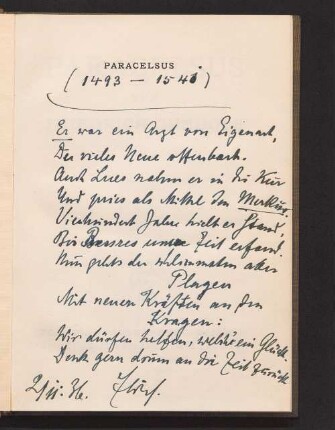 PARACELSUS
(1493 – 1541)
Er war ein Arzt von Eigenart,
Der vieles Neue offenbart.
Auch Lues nahm er in die Kur
Und pries als Mittel den Merkur.
Vierhundert Jahre hielt er Stand,
Bis Bessres unsre Zeit erfand.
Nun gehts der unheilvollen aller
Plagen
Mit neuen Kräften an den
Kragen:
Wir dürfen helfen, welch ein Glück
Denk gern drum an die Zeit zurück
2/11. 36.